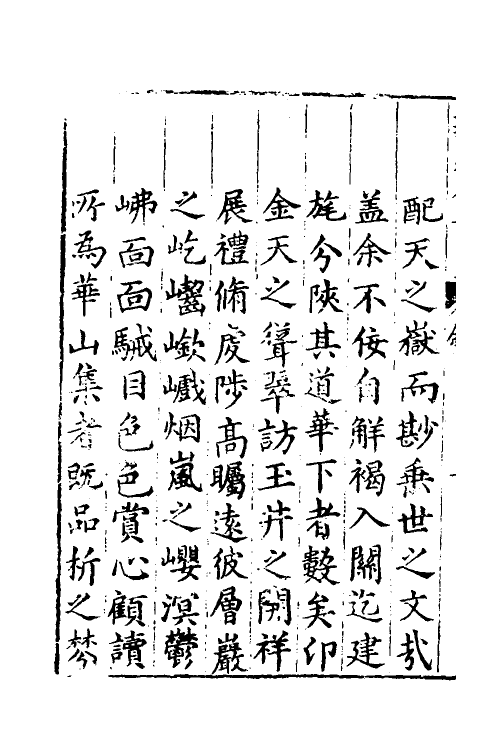 配天之嶽而尠乗世之文㦲
盖余不佞自解褐入關迄建
旄分陝其道華下者數矣卬
金天之聳翠訪玉井之開祥
展禮脩虔陟髙矚遠彼層巖
之屹㠋嶔巇烟嵐之巊溟鬱
岪面面駴目色色賞心顧讀
所為華山集者既品析之棼